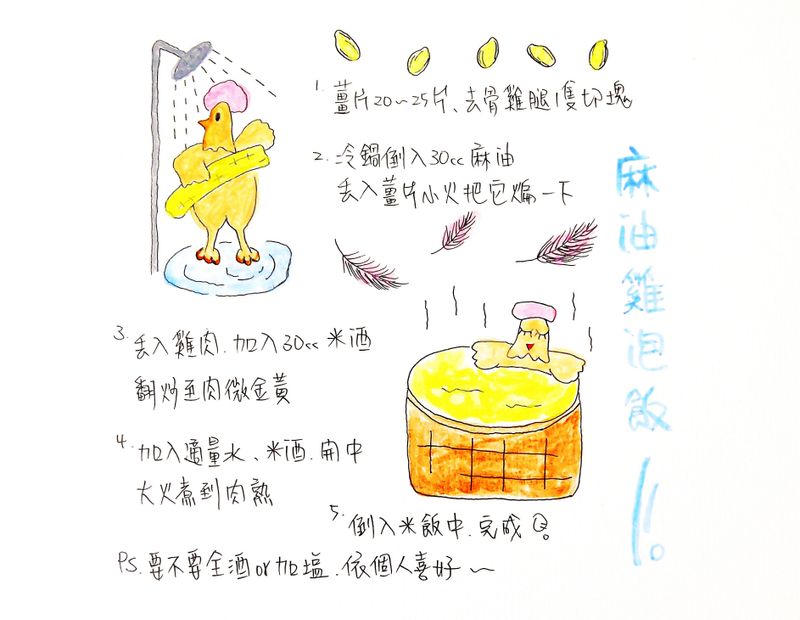 麻油雞泡飯!!
1. 薑片20~25片、去骨雞腿1隻切塊
2. 冷鍋倒入30cc麻油
丟入薑片小火把它煸一下
3. 丟入雞肉.加入30cc米酒
翻炒至肉微金黃
4. 加入適量水、米酒.開中
大火煮到肉熟
5. 倒入米飯中.完成
PS.要不要全酒or加塩.依個人喜好~